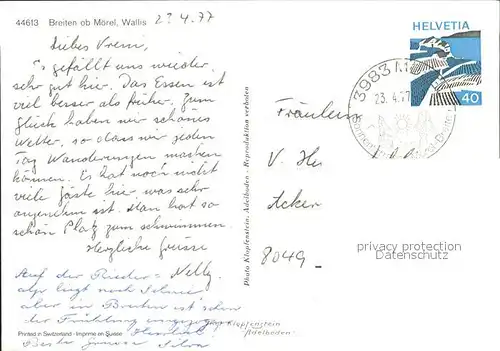 44613 Breiten ob Mörel, Wallis
23.4.77
Liebes Vreni,
's gefällt uns wieder
sehr gut hier. Das Essen ist
viel besser als früher. Zum
Glück haben wir schönes
Wetter, so dass wir jeden
Tag Wanderungen machen
können. Es hat noch nicht
viele Gäste hier was sehr
angenehm ist. Man hat so
schön Platz zum schwimmen.
Herzliche Grüsse
Nelly.
Auf der Rieder=
alp liegt noch Schnee
aber in Breiten ist schon
der Frühling
Herzlich
Beste Grüsse
Printed in Switzerland - Imprimé en Suisse
Photo Klopfenstein, Adelboden - Reproduktion verboten
HELVETIA
40
3983 M
23.4.77
Fräulein
V. He
Acker
8049
privacy protection
Datenschutz
Photo Klopfenstein
Adelboden